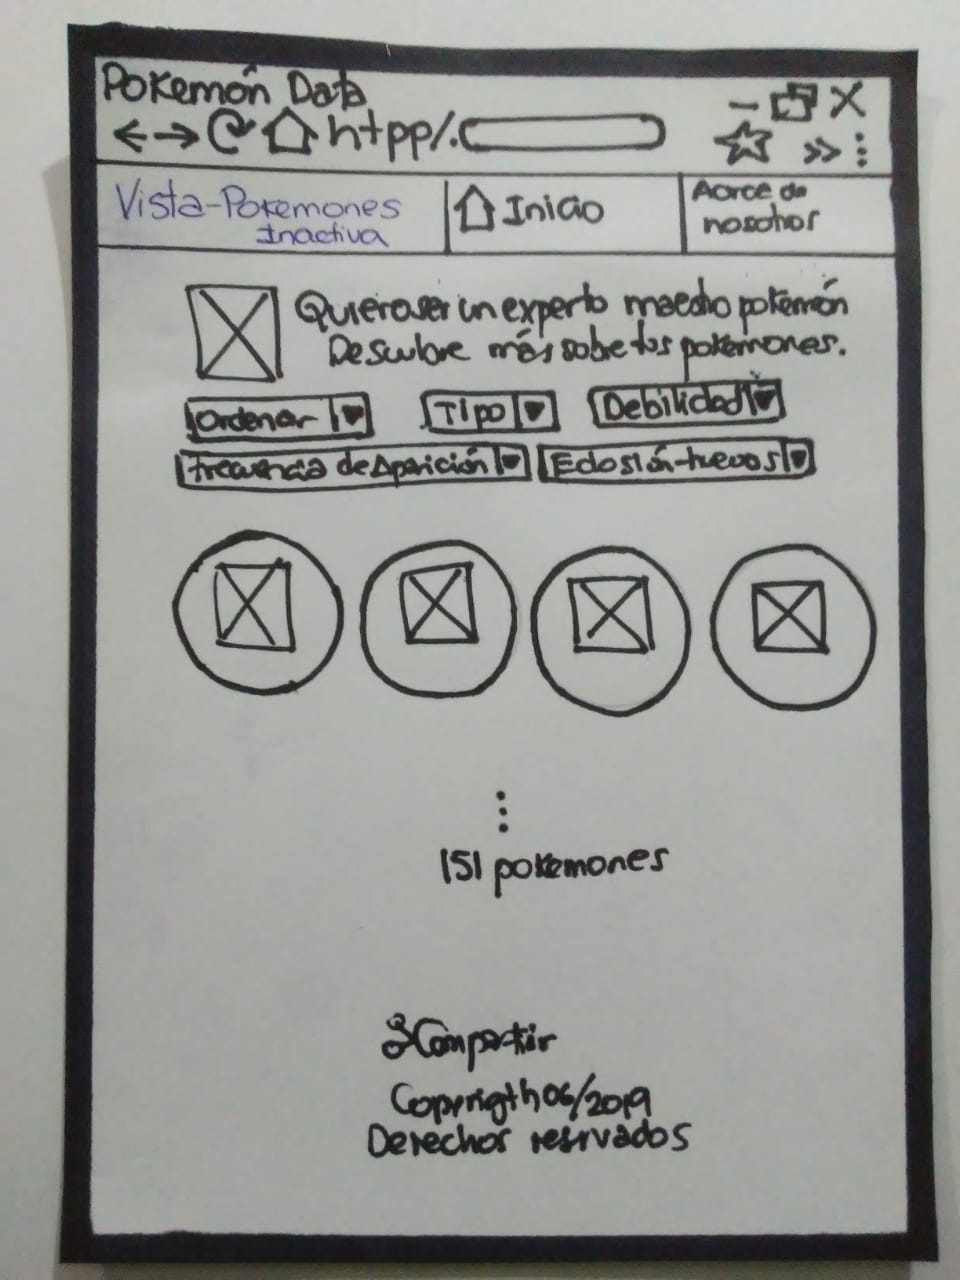 Pokemón Data
htpp/.
Vista-Pokemones
Inactiva
Inicio
Acerce de
nosotros
Quiero ser un experto maestro pokemón
Descubre más sobre los pokemones.
Ordenar
Tipo
Debilidad
Frecuencia de Aparición
Eclosión-huevos
151 pokemones
Compartir
Copyrigth 06/2019
Derechos resrvados